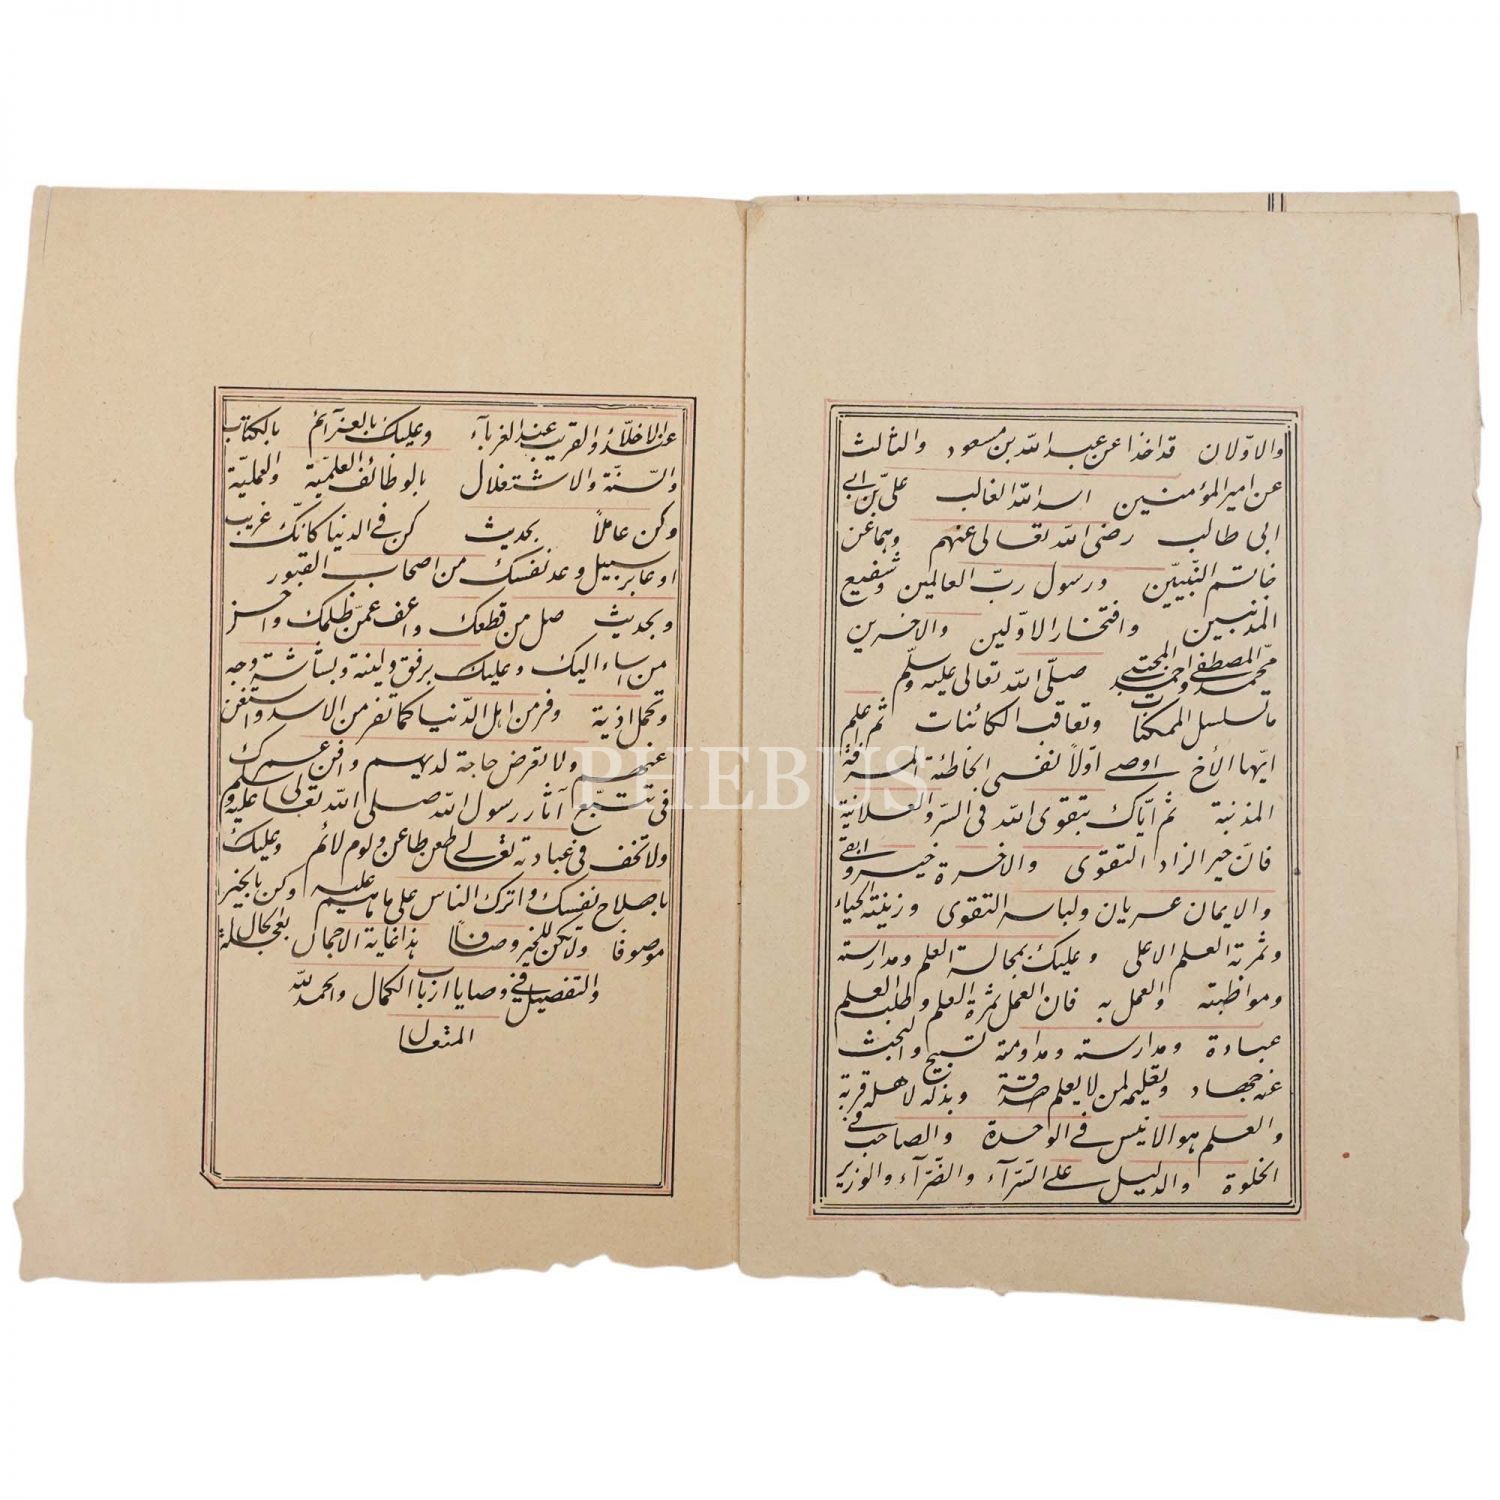 والاوّلان قد اخذا عن عبد اللّه بن مسعود والثالث
عن امير المؤمنين اسد اللّه الغالب علىّ بن ابى
ابى طالب رضى اللّه تعالى عنهم وهما عن
خاتم النّبيّين ورسول ربّ العالمين وشفيع
المذنبين وافتخار الاوّلين والاخرين
محمّد المصطفى واحمد المجتبى صلّى اللّه تعالى عليه وسلّم
ما تسلسل الممكنات وتعاقب الكائنات ثم اعلم
ايّها الأخ اوصى اوّلاً نفسى الخاطئة المسرفة
المذنبة ثم ايّاك بتقوى اللّه فى السرّ والعلانية
فانّ خير الزاد التقوى والاخرة خير وابقى
والايمان عريان ولباسه التقوى وزينته الحياء
وثمرته العلم الاعلى وعليك بمجالسة العلم ومدارسته
ومواظبته والعمل به فان العمل ثمرة العلم وطلب العلم
عبادة ومدارسته ومداومته تسبيح والبحث
عنه جهاد وتعليمه لمن لا يعلم صدقة وبذله لاهله قربة
والعلم هو الانيس فى الوحدة والصاحب فى
الخلوة والدليل على السّرآء والضّرآء والوزير
عند الاخلّاء والقريب عند الغربآء وعليك بالعزآئم بالكتاب
والسّنّة والاشتغلال بالوظائف العلميّة والعمليّة
وكن عاملاً بحديث كن فى الدنيا كانّك غريب
او عابر سبيل وعد نفسك من اصحاب القبور
وبحديث صل من قطعك واعف عمّن ظلمك واحسن
من اساء اليك وعليك برفق ولينة وبشاشة وجه
وتحمل اذية وفر من اهل الدّنيا كما تفر من الاسد واستغن
عنهم ولا تعرض حاجة لديهم وافن عمرك
فى تتبّع آثار رسول اللّه صلى اللّه تعالى عليه وسلم
ولا تخف فى عبادته تعالى طعن طاعن ولوم لائم وعليك
باصلاح نفسك واترك الناس على ما هم عليه وكن بالخير
موصوفا ولا تكن للخير وصافا هذا غاية الاجمال بعجالة الحال
والتفصيل فى وصايا ارباب الكمال والحمد للّه
المتعال
PHEBUS